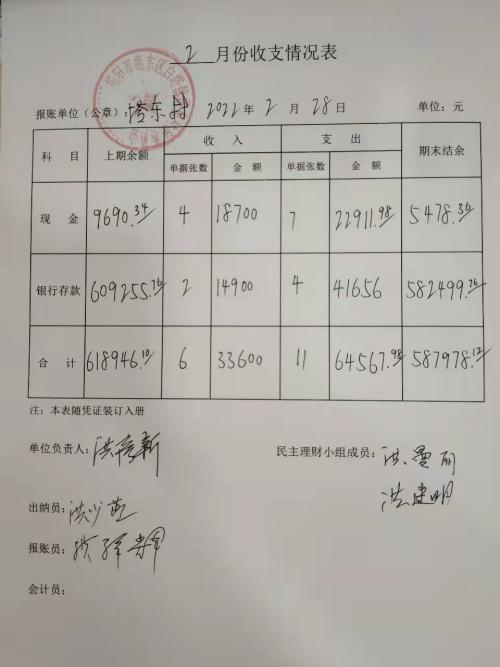 2 月份收支情况表
报账单位（公章）：塔东村 2022 年 2 月 28 日 单位：元
科 目 上期余额 收 入 支 出 期末结余
单据张数 金 额 单据张数 金 额
现 金 9690.34 4 18700 7 22911.98 5478.36
银行存款 609255.76 2 14900 4 41656 582499.76
合 计 618946.10 6 33600 11 64567.98 587978.12
注：本表随凭证装订入册
单位负责人：洪彦新 民主理财小组成员：洪曼丽
洪建明
出纳员：洪少
报账员：
会计员：